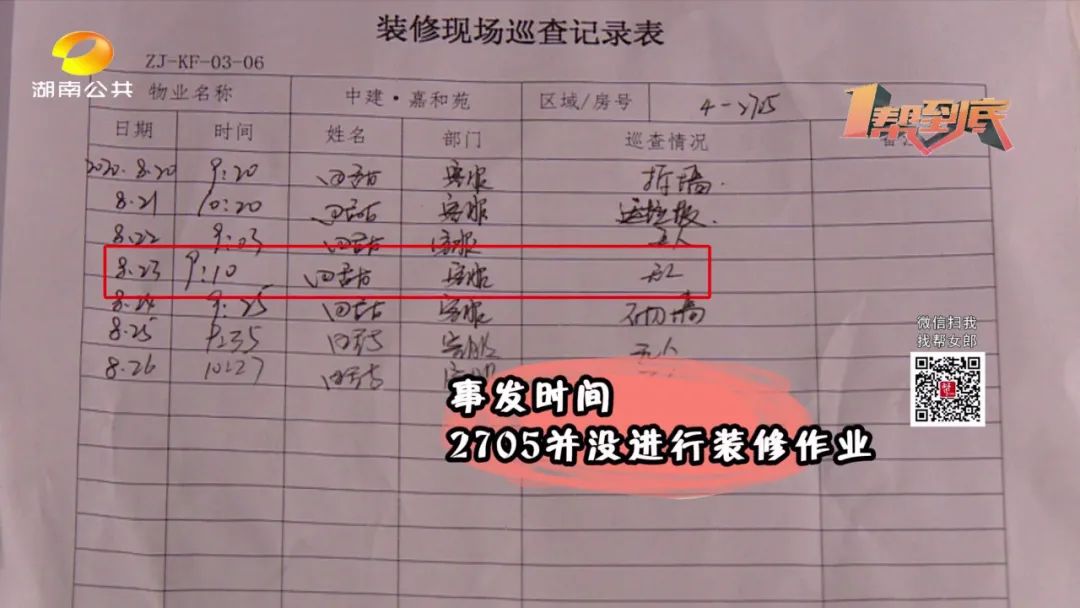 装修现场巡查记录表
湖南公共
ZJ-KF-03-06
1帮到底
物业名称 中建·嘉和苑 区域/房号 4-2705
日期 时间 姓名 部门 巡查情况
2020.8.20 9:20 客服 拆墙.
8.21 10:20 客服
8.22 9:03 客服 无人
8.23 9:10 客服
8.24 9:25 客服 砌墙
8.25 9:35 客服 无人
8.26 10:27
微信扫我
找帮女郎
事发时间
2705并没进行装修作业